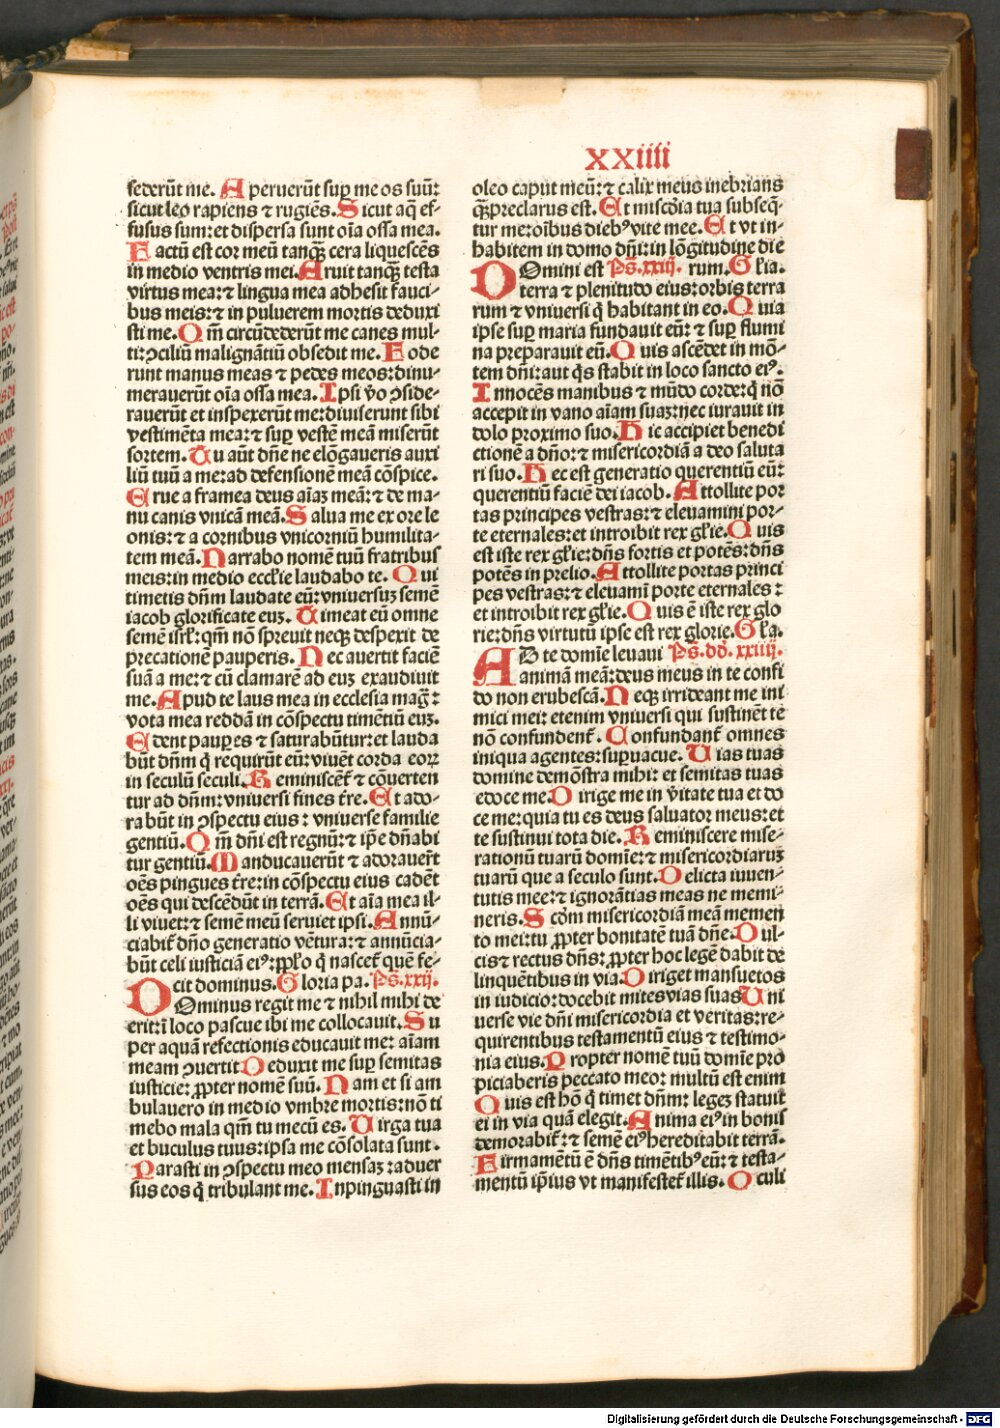 XXIIII
sederūt me. Aperuerūt suꝑ me os suū:
sicut leo rapiens ⁊ rugiēs. Sicut aq̄ ef-
fusus sum: et dispersa sunt oīa ossa mea.
Factū est cor meū tanqꝫ cera liquescēs
in medio ventris mei. Aruit tanqꝫ testa
virtus mea: ⁊ lingua mea adhesit fauci-
bus meis: ⁊ in puluerem mortis deduxi
sti me. Qm̄ circūdederūt me canes mul-
ti: ꝯciliū malignātiū obsedit me. Fode
runt manus meas ⁊ pedes meos: dinu-
merauerūt oīa ossa mea. Ipsi v̄o ꝯside-
rauerūt et inspexerūt me: diuiserunt sibi
vestimēta mea: ⁊ suꝑ vestē meā miserūt
sortem. Tu aūt dn̄e ne elōgaueris auxi
liū tuū a me: ad defensionē meā cōspice.
Erue a framea deus aīaꝫ meā: ⁊ de ma-
nu canis vnicā meā. Salua me ex ore le
onis: ⁊ a cornibus vnicorniū humilita-
tem meā. Narrabo nomē tuū fratribus
meis: in medio eccl'ie laudabo te. Qui
timetis dn̄m laudate eū: vniuersuꝫ semē
iacob glorificate euꝫ. Timeat eū omne
semē isrl': qm̄ nō spreuit neqꝫ despexit de
precationē pauperis. Nec auertit faciē
suā a me: ⁊ cū clamarē ad euꝫ exaudiuit
me. Apud te laus mea in ecclesia mag:
vota mea reddā in cōspectu timētiū euꝫ.
Edent pauꝑes ⁊ saturabūtur: et lauda
būt dn̄m q̄ requirūt eū: viuēt corda eoꝝ
in seculū seculi. Reminiscēt ⁊ cōuerten
tur ad dn̄m: vniuersi fines t̄re. Et ado-
rabūt in ꝯspectu eius: vniuerse familie
gentiū. Qm̄ dn̄i est regnū: ⁊ ip̄e dn̄abi
tur gentiū. Manducauerūt ⁊ adorauer̄t
oēs pingues t̄re: in cōspectu eius cadēt
oēs qui descēdūt in terrā. Et aīa mea il-
li viuet: ⁊ semē meū seruiet ipsi. Annū-
ciabit̄ dn̄o generatio vētura: ⁊ annūcia-
būt celi iusticiā eiꝰ: pp̄lo q̄ nascet̄ quē fe-
cit dominus. Gloria pa. Ps̄. xxij.
DOminus regit me ⁊ nihil mihi de
erit: ī loco pascue ibi me collocauit. Su
per aquā refectionis educauit me: aīam
meam ꝯuertit. Deduxit me suꝑ semitas
iusticie: ꝓpter nomē suū. Nam et si am
bulauero in medio vmbre mortis: nō ti
mebo mala qm̄ tu mecū es. Uirga tua
et buculus tuus: ipsa me cōsolata sunt.
Parasti in ꝯspectu meo mensaꝫ: aduer
sus eos q̄ tribulant me. Inpinguasti in
oleo caput meū: ⁊ calix meus inebrians
qꝫ preclarus est. Et miscd̄ia tua subseq̄-
tur me: oībus diebꝰ vite mee. Et vt in-
habitem in domo dn̄i: in lōgitudinē die
rum. Gl'ia. Ps̄. xxiij.
DOmini est
terra ⁊ plenitudo eius: orbis terra
rum ⁊ vniuersi q̄ habitant in eo. Quia
ipse suꝑ maria fundauit eū: ⁊ suꝑ flumi
na preparauit eū. Quis ascēdet in mō-
tem dn̄i: aut q̄s stabit in loco sancto eiꝰ.
Innocēs manibus ⁊ mūdo corde: q̄ nō
accepit in vano aīam suaꝫ: nec iurauit in
dolo proximo suo. Hic accipiet benedi
ctionē a dn̄o: ⁊ misericordiā a deo saluta
ri suo. Hec est generatio querentiū eū:
querentiū faciē dei iacob. Attollite por
tas principes vestras: ⁊ eleuamini por-
te eternales: et introibit rex gl'ie. Quis
est iste rex gl'ie: dn̄s fortis et potēs: dn̄s
potēs in prelio. Attollite portas princi
pes vestras: ⁊ eleuamī porte eternales:
et introibit rex gl'ie. Quis ē iste rex glo
rie: dn̄s virtutū ipse est rex glorie. Gl'a.
AD te domīe leuaui Ps̄. dd̄. xxiiij.
animā meā: deus meus in te confi
do non erubescā. Neqꝫ irrideant me ini
mici mei: etenim vniuersi qui sustinēt te
nō confundent̄. Confundant̄ omnes
iniqua agentes: suꝑuacue. Uias tuas
domine demōstra mihi: et semitas tuas
edoce me. Dirige me in v̄itate tua et do
ce me: quia tu es deus saluator meus: et
te sustinui tota die. Reminiscere mise-
rationū tuarū domīe: ⁊ misericordiaruꝫ
tuarū que a seculo sunt. Delicta iuuen-
tutis mee: ⁊ ignorātias meas ne memi-
neris. Scd̄m misericordiā meā memen
to mei: tu ꝓpter bonitatē tuā dn̄e. Dul-
cis ⁊ rectus dn̄s: ꝓpter hoc legē dabit de
linquētibus in via. Diriget mansuetos
in iudicio: docebit mites vias suas. Uni
uerse vie dn̄i misericordia et veritas: re-
quirentibus testamentū eius ⁊ testimo-
nia eius. Propter nomē tuū domīe pro
piciaberis peccato meo: multū est enim
Quis est hō q̄ timet dn̄m: legeꝫ statuit
ei in via quā elegit. Anima eiꝰ in bonis
demorabit̄: ⁊ semē eiꝰ hereditabit terrā.
Firmamētū ē dn̄s timētibꝰ eū: ⁊ testa-
mentū ip̄ius vt manifestet̄ illis. Oculi
Digitalisierung gefördert durch die Deutsche Forschungsgemeinschaft - DFG